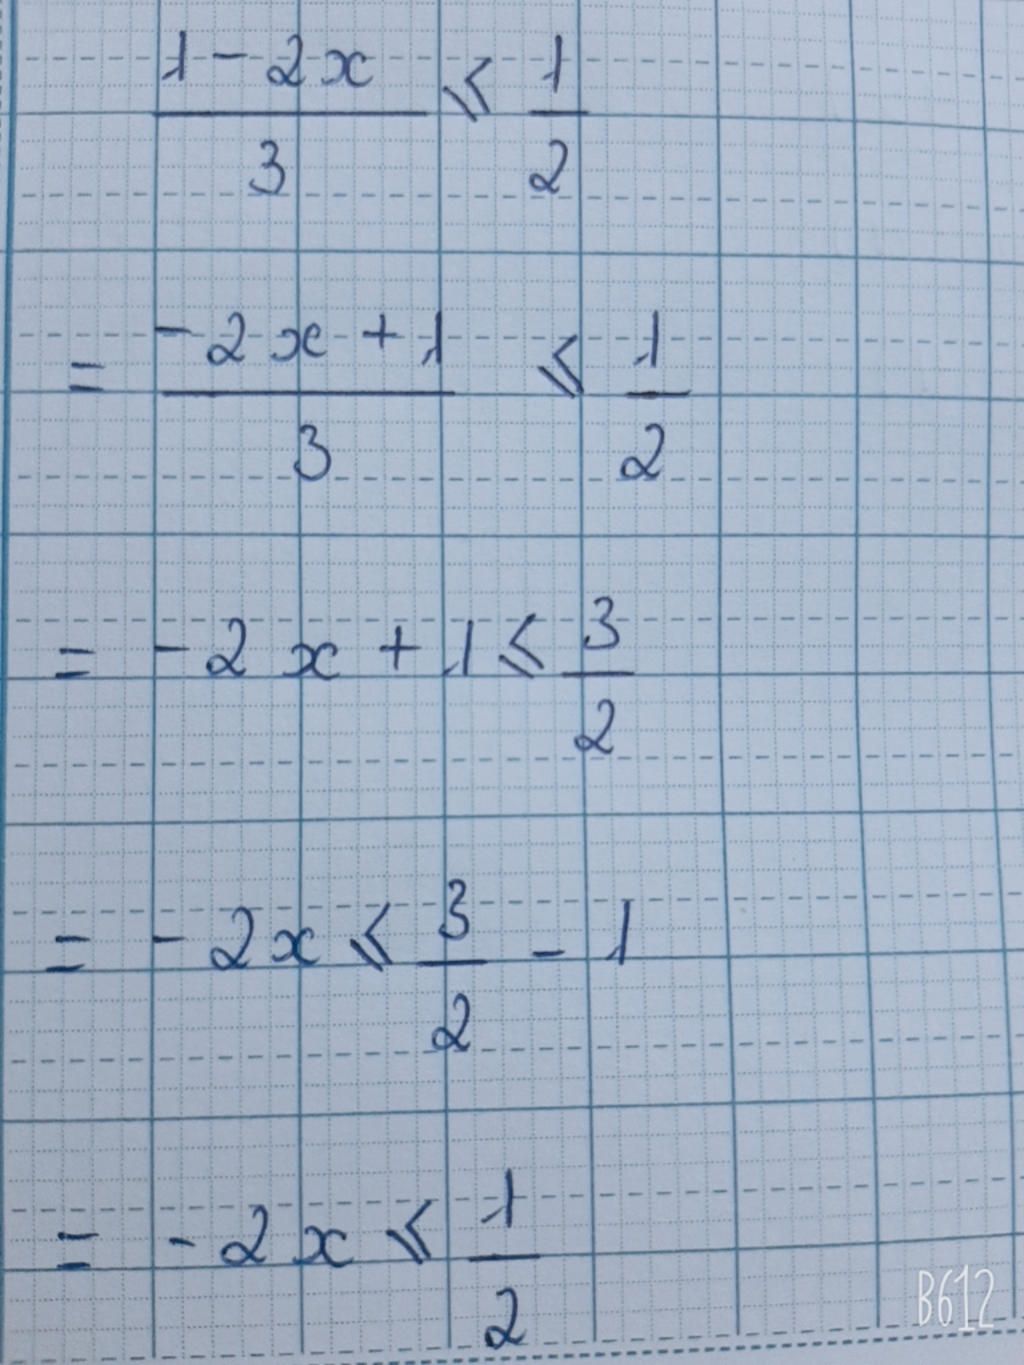 1 - 2x / 3 ⩽ 1 / 2
= -2x + 1 / 3 ⩽ 1 / 2
= -2x + 1 ⩽ 3 / 2
= -2x ⩽ 3 / 2 - 1
= -2x ⩽ 1 / 2
B612